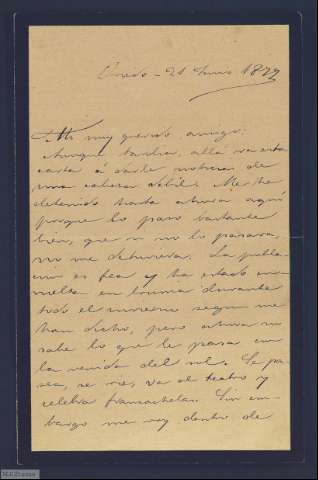 Oviedo - 21 Junio 1877
Mi muy querido amigo:
Aunque tardia, allá va esta
carta á darle noticia de
una cabeza débil. Me he
detenido hasta ahora aquí
porque lo paso bastante
bien, que si no lo pasara,
no me detuviera. La pobla
cion es fea y ha estado en
vuelta en bruma durante
todo el invierno segun me
han dicho, pero ahora no
sabe lo que le pasa con
la venida del sol. Se pa
sea, se rie, va al teatro y
celebra francachelas. Sin em
bargo me voy dentro de